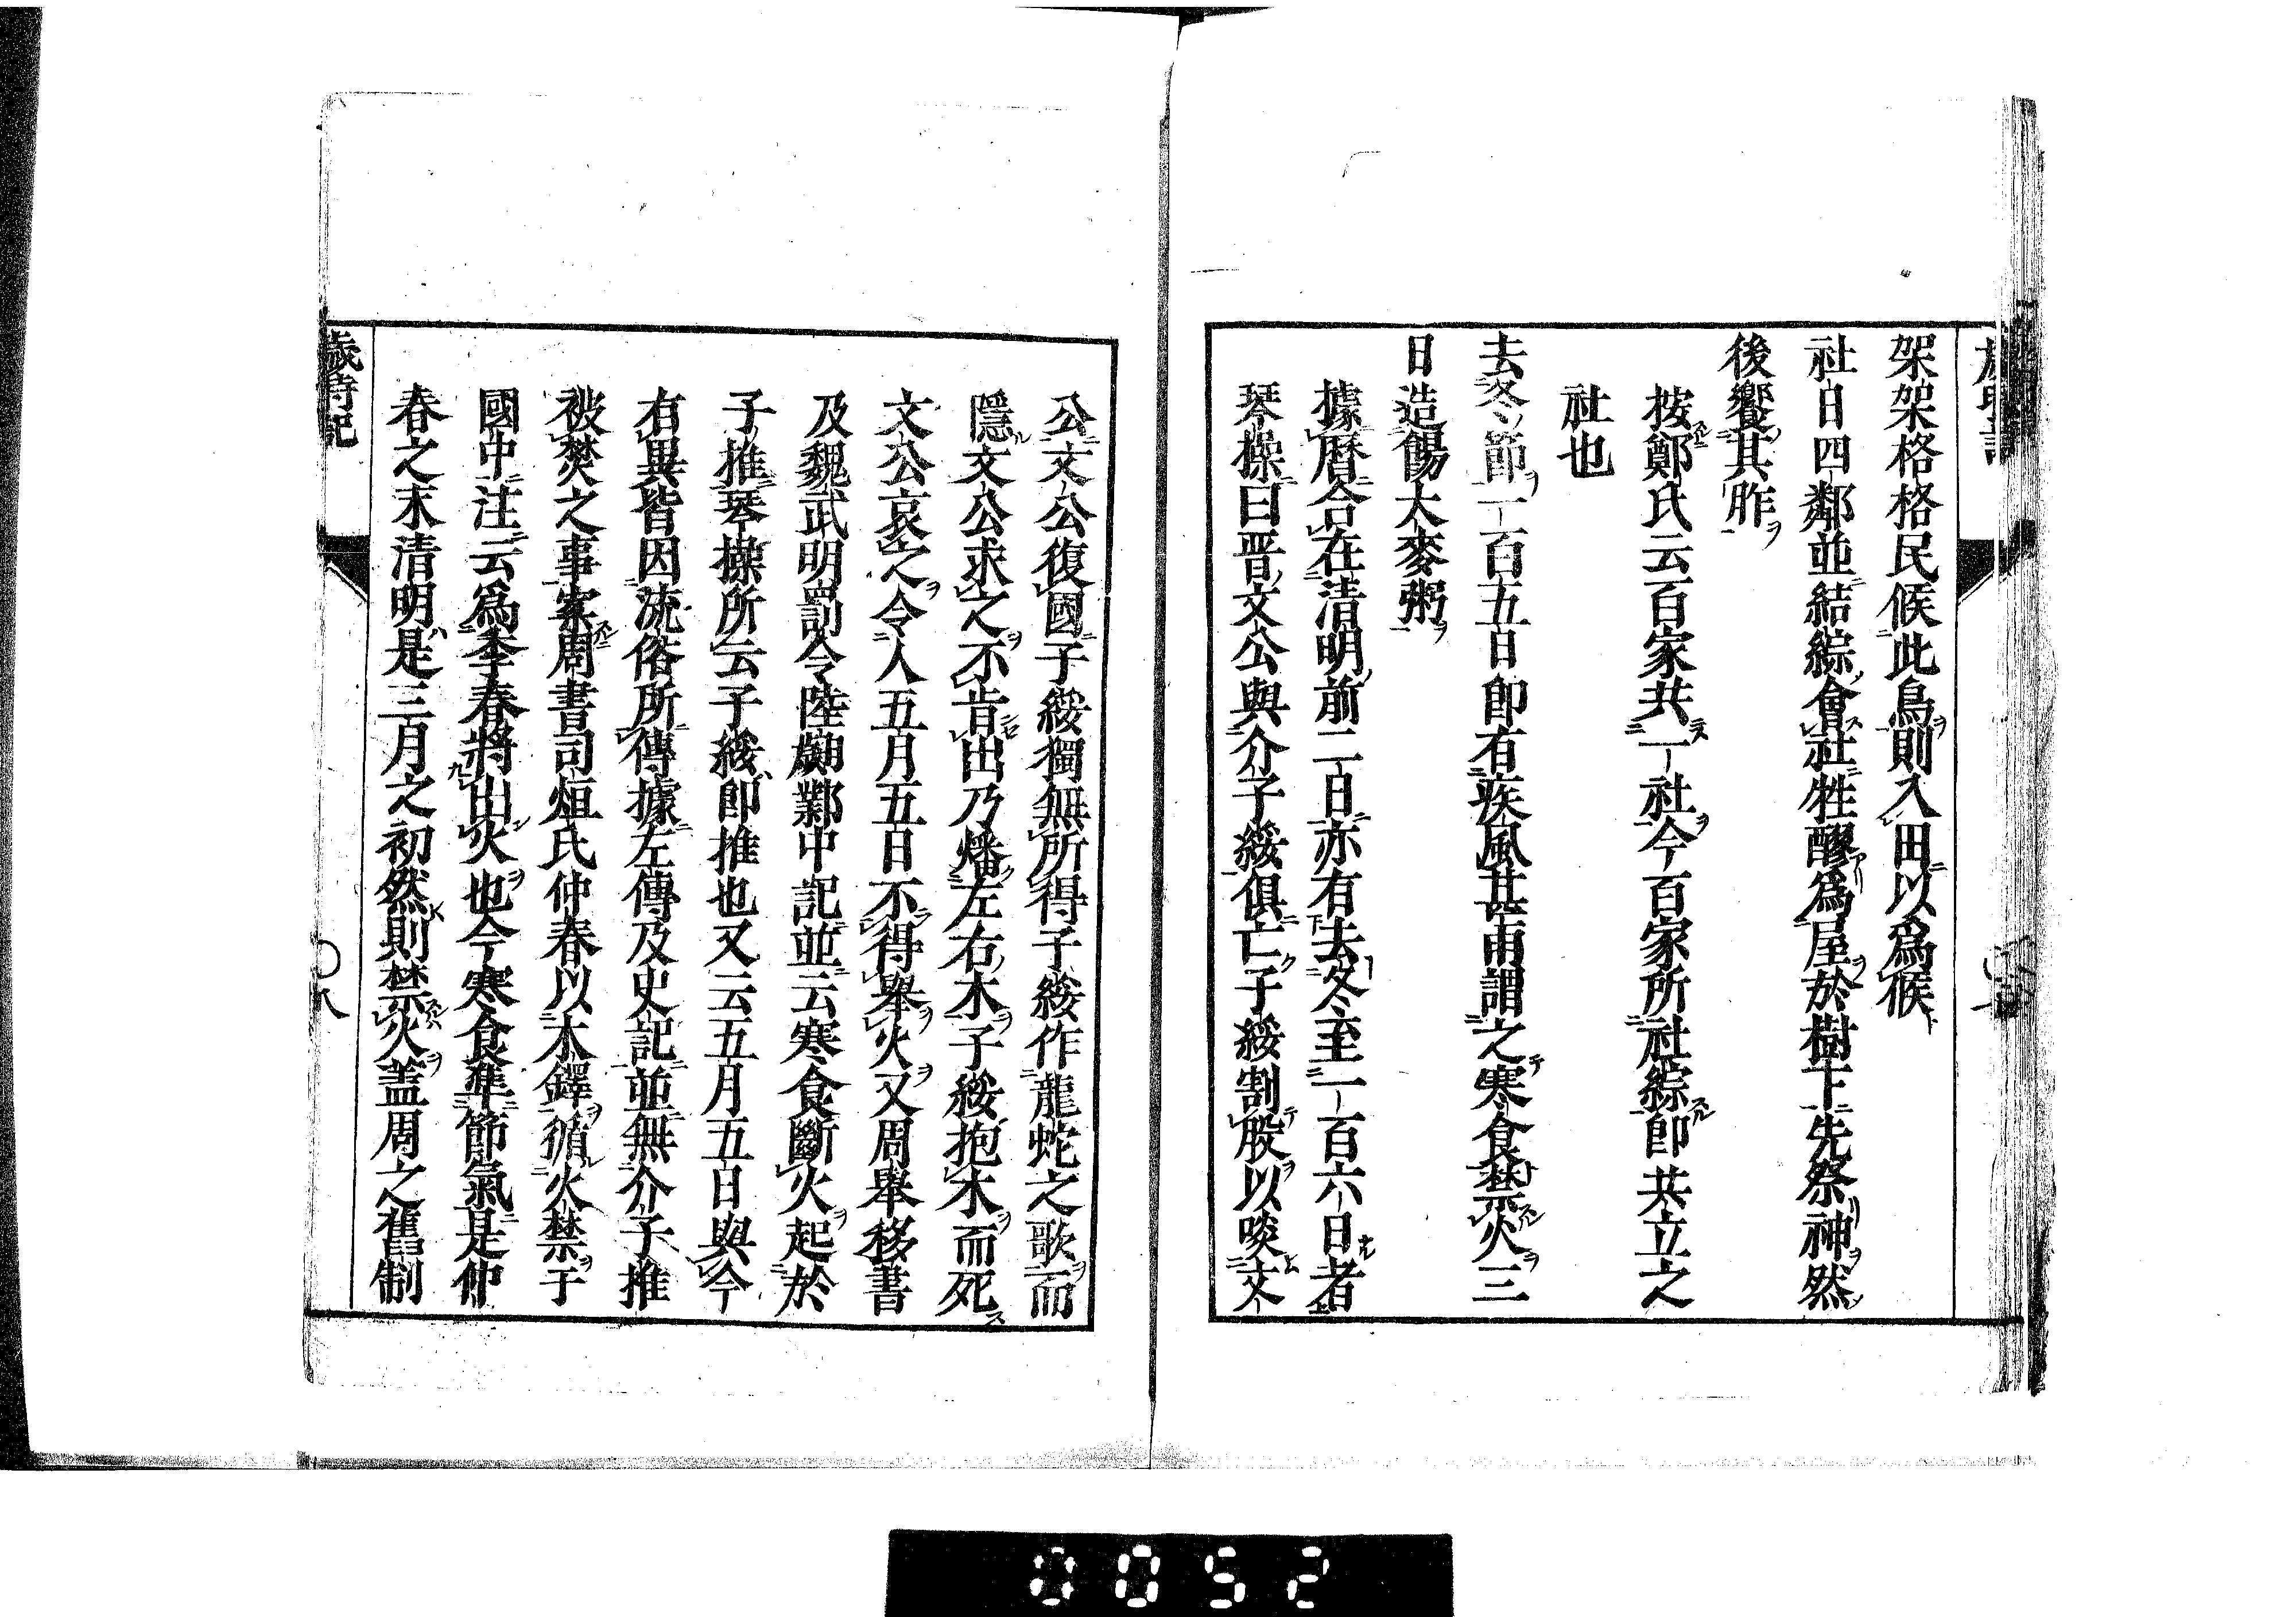 架架格格民候此鳥則入田以爲候
社日四鄰並結綜會社牲醪爲屋於樹下先祭神然
後饗其胙
按鄭氏云百家共一社今百家所社綜即共立之
社也
去冬節一百五日即有疾風甚雨謂之寒食禁火三
日造餳大麥粥
據曆合在清明前二日亦有去冬至一百六日者
琴操曰晋文公與介子綏俱亡子綏割股以啖文
公文公復國子綏獨無所得子綏作龍蛇之歌而
隱文公求之不肯出乃燔左右木子綏抱木而死
文公哀之令人五月五日不得舉火又周舉移書
及魏武明罰令陸翽鄴中記並云寒食斷火起於
子推琴操所云子綏即推也又云五月五日與今
有異皆因流俗所傳據左傳及史記並無介子推
被焚之事案周書司烜氏仲春以木鐸循火禁于
國中注云爲季春將出火也今寒食準節氣是仲
春之末清明是三月之初然則禁火盖周之舊制
歲時記
八
0052